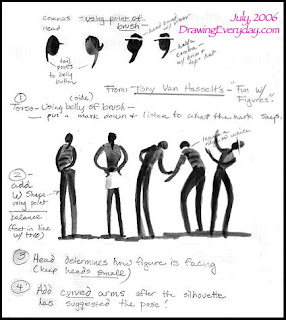 July, 2006
DrawingEveryday.com
commas - using point of brush -
Head
tail points to belly button
From: Tony Van Hasselt's - "Fun w/ Figures".
① (side)
Torso - Using belly of brush -
put a mark down & listen to what the mark says.
② -
add
w/ shape
using point
balance
(feet in line
w/ torso)
③ Head determines how figure is facing
(keep heads small)
④ Add curved arms after the silhouette
has suggested the pose!